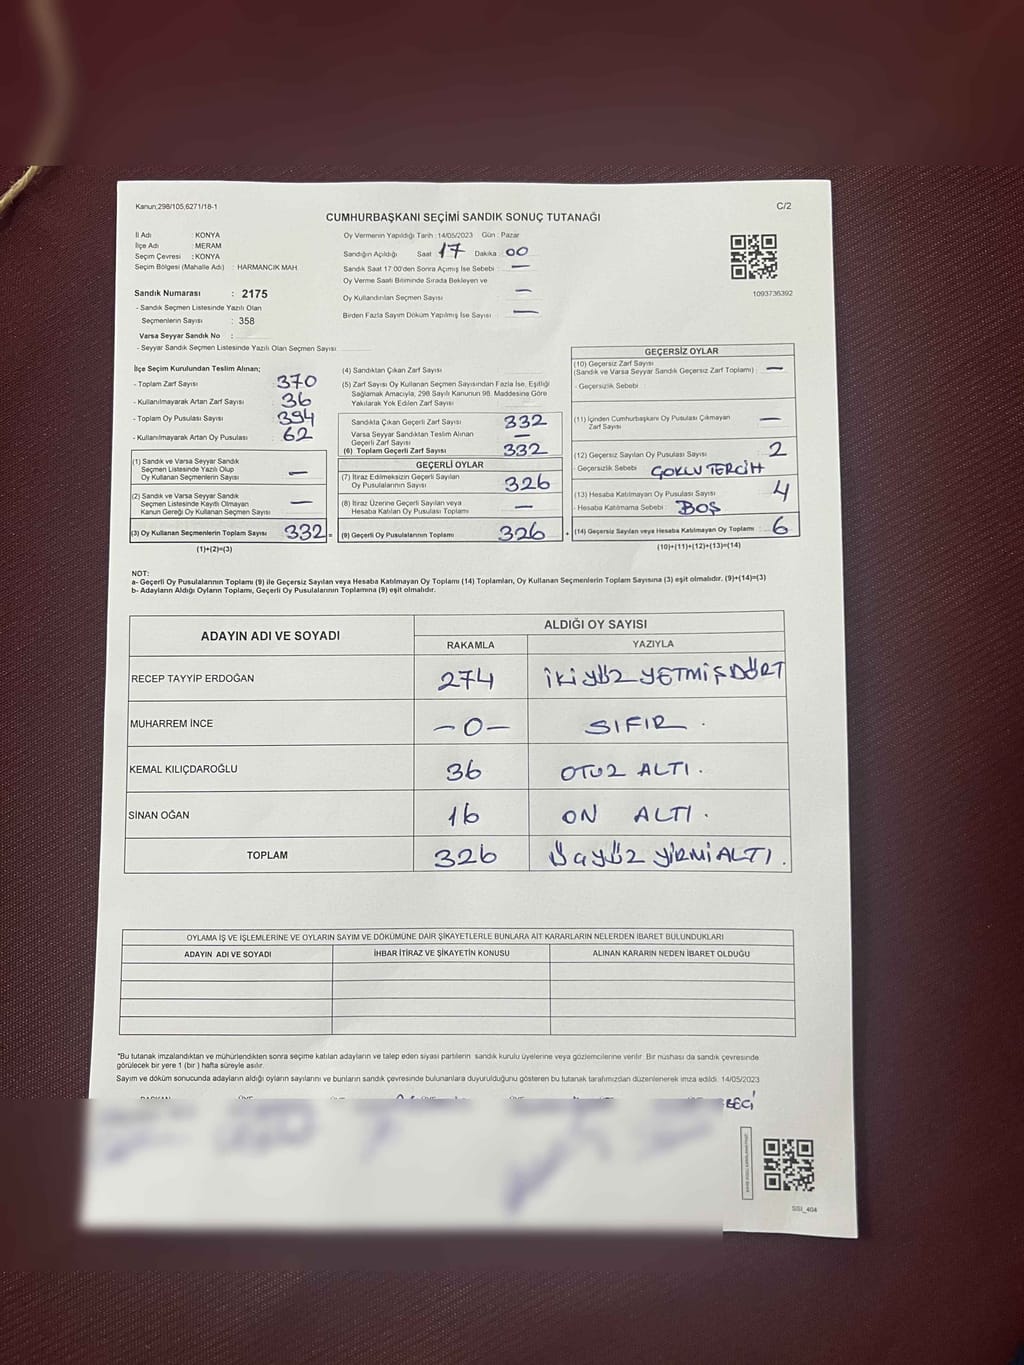 Kanun;298/105,6271/18-1
C/2
CUMHURBAŞKANI SEÇİMİ SANDIK SONUÇ TUTANAĞI
İl Adı : KONYA
İlçe Adı : MERAM
Seçim Çevresi : KONYA
Seçim Bölgesi (Mahalle Adı) : HARMANCIK MAH
Sandık Numarası : 2175
- Sandık Seçmen Listesinde Yazılı Olan
Seçmenlerin Sayısı : 358
Varsa Seyyar Sandık No :
- Seyyar Sandık Seçmen Listesinde Yazılı Olan Seçmen Sayısı
Oy Vermenin Yapıldığı Tarih :14/05/2023 Gün : Pazar
Sandığın Açıldığı Saat 17 Dakika : 00
Sandık Saat 17:00'den Sonra Açılmış İse Sebebi : —
Oy Verme Saati Bitiminde Sırada Bekleyen ve
Oy Kullandırılan Seçmen Sayısı —
Birden Fazla Sayım Döküm Yapılmış İse Sayısı : —
1093736392
İlçe Seçim Kurulundan Teslim Alınan;
- Toplam Zarf Sayısı 370
- Kullanılmayarak Artan Zarf Sayısı 36
- Toplam Oy Pusulası Sayısı 394
- Kullanılmayarak Artan Oy Pusulası 62
(1) Sandık ve Varsa Seyyar Sandık
Seçmen Listesinde Yazılı Olup
Oy Kullanan Seçmenlerin Sayısı —
(2) Sandık ve Varsa Seyyar Sandık
Seçmen Listesinde Kayıtlı Olmayan
Kanun Gereği Oy Kullanan Seçmen Sayısı —
(3) Oy Kullanan Seçmenlerin Toplam Sayısı 332 =
(1)+(2)=(3)
(4) Sandıktan Çıkan Zarf Sayısı
(5) Zarf Sayısı Oy Kullanan Seçmen Sayısından Fazla İse, Eşitliği
Sağlamak Amacıyla, 298 Sayılı Kanunun 98. Maddesine Göre
Yakılarak Yok Edilen Zarf Sayısı
Sandıkta Çıkan Geçerli Zarf Sayısı 332
Varsa Seyyar Sandıktan Teslim Alınan
Geçerli Zarf Sayısı —
(6) Toplam Geçerli Zarf Sayısı 332
GEÇERLİ OYLAR
(7) İtiraz Edilmeksizin Geçerli Sayılan
Oy Pusulalarının Sayısı 326
(8) İtiraz Üzerine Geçerli Sayılan veya
Hesaba Katılan Oy Pusulası Toplamı —
(9) Geçerli Oy Pusulalarının Toplamı 326 +
GEÇERSİZ OYLAR
(10) Geçersiz Zarf Sayısı
(Sandık ve Varsa Seyyar Sandık Geçersiz Zarf Toplamı) : —
- Geçersizlik Sebebi :
(11) İçinden Cumhurbaşkanı Oy Pusulası Çıkmayan
Zarf Sayısı —
(12) Geçersiz Sayılan Oy Pusulası Sayısı 2
- Geçersizlik Sebebi ÇOKLU TERCİH
(13) Hesaba Katılmayan Oy Pusulası Sayısı 4
- Hesaba Katılmama Sebebi : BOŞ
(14) Geçersiz Sayılan veya Hesaba Katılmayan Oy Toplamı : 6
(10)+(11)+(12)+(13)=(14)
NOT:
a- Geçerli Oy Pusulalarının Toplamı (9) ile Geçersiz Sayılan veya Hesaba Katılmayan Oy Toplamı (14) Toplamları, Oy Kullanan Seçmenlerin Toplam Sayısına (3) eşit olmalıdır. (9)+(14)=(3)
b- Adayların Aldığı Oyların Toplamı, Geçerli Oy Pusulalarının Toplamına (9) eşit olmalıdır.
ADAYIN ADI VE SOYADI
ALDIĞI OY SAYISI
RAKAMLA YAZIYLA
RECEP TAYYİP ERDOĞAN 274 İKİ YÜZ YETMİŞ DÖRT
MUHARREM İNCE —0— SIFIR .
KEMAL KILIÇDAROĞLU 36 OTUZ ALTI .
SİNAN OĞAN 16 ON ALTI .
TOPLAM 326 ÜÇ YÜZ YİRMİ ALTI .
OYLAMA İŞ VE İŞLEMLERİNE VE OYLARIN SAYIM VE DÖKÜMÜNE DAİR ŞİKAYETLERLE BUNLARA AİT KARARLARIN NELERDEN İBARET BULUNDUKLARI
ADAYIN ADI VE SOYADI İHBAR İTİRAZ VE ŞİKAYETİN KONUSU ALINAN KARARIN NEDEN İBARET OLDUĞU
*Bu tutanak imzalandıktan ve mühürlendikten sonra seçime katılan adayların ve talep eden siyasi partilerin sandık kurulu üyelerine veya gözlemcilerine verilir. Bir nüshası da sandık çevresinde
görülecek bir yere 1 (bir ) hafta süreyle asılır.
Sayım ve döküm sonucunda adayların aldığı oyların sayılarını ve bunların sandık çevresinde bulunanlara duyurulduğunu gösteren bu tutanak tarafımızdan düzenlenerek imza edildi. 14/05/2023
SSI_404